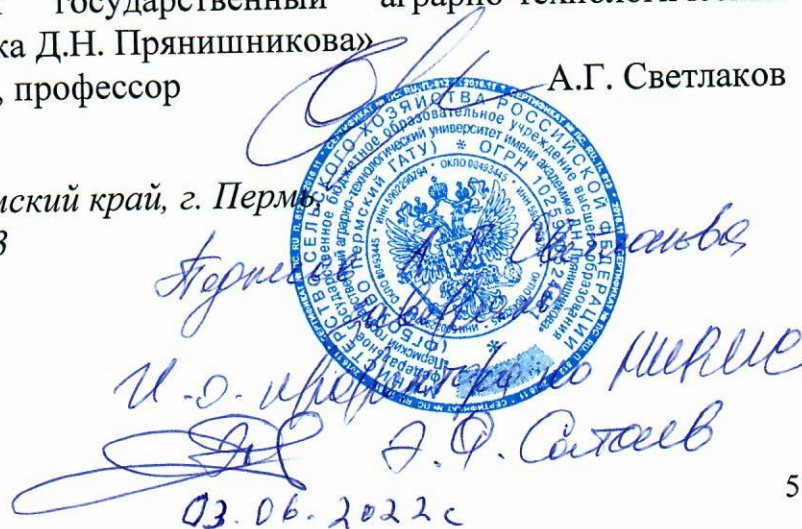 государственный аграрно-технологический
ка Д.Н. Прянишникова»
, профессор
А.Г. Светлаков
мский край, г. Пермь,
3
Подпись А.Г. Светлакова
заверяю
И.о. проректора по НИРМС
Э.Ф. Сатаев
03.06.2022г
МИНИСТЕРСТВО СЕЛЬСКОГО ХОЗЯЙСТВА РОССИЙСКОЙ ФЕДЕРАЦИИ
федеральное государственное бюджетное образовательное учреждение высшего образования
«Пермский государственный аграрно-технологический университет имени академика Д.Н. Прянишникова»
(ФГБОУ ВО Пермский ГАТУ) * ОГРН
ОКПО 00493445
5